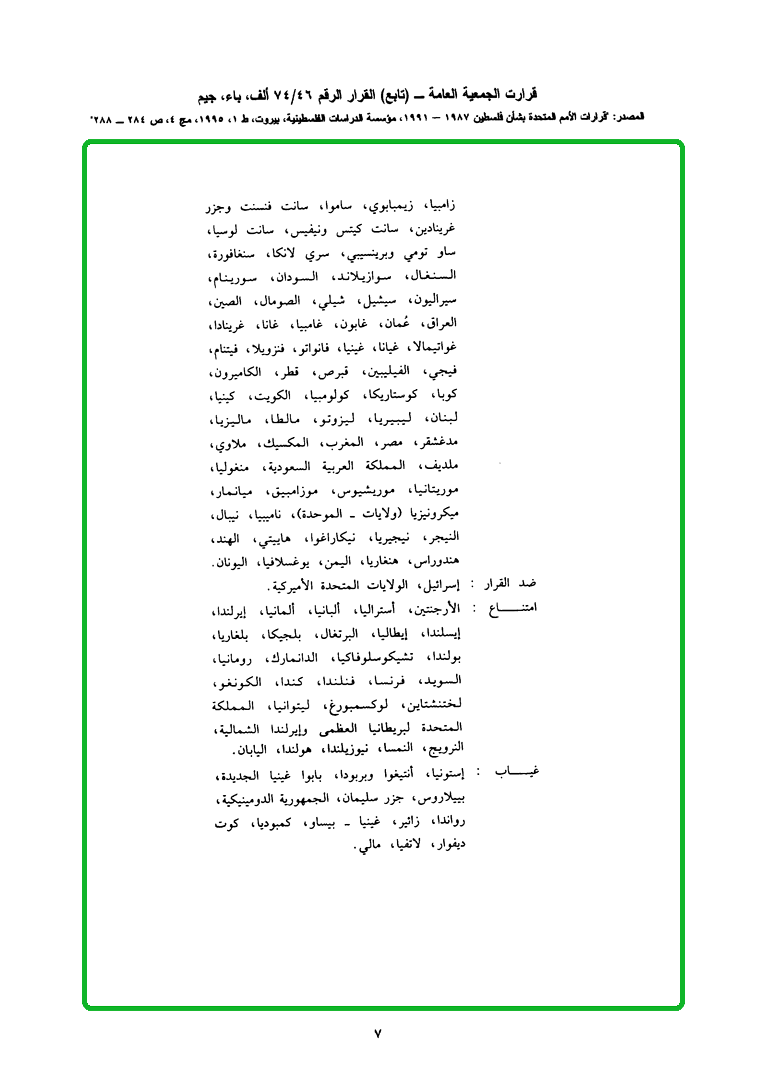 قرارت الجمعية العامة ــ (تابع) القرار الرقم ٧٤/٤٦ ألف، باء، جيم
المصدر: "قرارات الأمم المتحدة بشأن فلسطين ١٩٨٧ – ١٩٩١، مؤسسة الدراسات الفلسطينية، بيروت، ط ١، ١٩٩٥، مج ٤، ص ٢٨٤ ــ ٢٨٨"
زامبيا، زيمبابوي، ساموا، سانت فنسنت وجزر
غرينادين، سانت كيتس ونيفيس، سانت لوسيا،
ساو تومي وبرينسيبي، سري لانكا، سنغافورة،
السنغال، سوازيلاند، السودان، سورينام،
سيراليون، سيشيل، شيلي، الصومال، الصين،
العراق، عُمان، غابون، غامبيا، غانا، غرينادا،
غواتيمالا، غيانا، غينيا، فانواتو، فنزويلا، فيتنام،
فيجي، الفيليبين، قبرص، قطر، الكاميرون،
كوبا، كوستاريكا، كولومبيا، الكويت، كينيا،
لبنان، ليبيريا، ليزوتو، مالطا، ماليزيا،
مدغشقر، مصر، المغرب، المكسيك، ملاوي،
ملديف، المملكة العربية السعودية، منغوليا،
موريتانيا، موريشيوس، موزامبيق، ميانمار،
ميكرونيزيا (ولايات ـ الموحدة)، ناميبيا، نيبال،
النيجر، نيجيريا، نيكاراغوا، هاييتي، الهند،
هندوراس، هنغاريا، اليمن، يوغسلافيا، اليونان.
ضد القرار : إسرائيل، الولايات المتحدة الأميركية.
امتنـــــاع : الأرجنتين، أستراليا، ألبانيا، ألمانيا، إيرلندا،
إيسلندا، إيطاليا، البرتغال، بلجيكا، بلغاريا،
بولندا، تشيكوسلوفاكيا، الدانمارك، رومانيا،
السويد، فرنسا، فنلندا، كندا، الكونغو،
لختنشتاين، لوكسمبورغ، ليتوانيا، المملكة
المتحدة لبريطانيا العظمى وإيرلندا الشمالية،
النرويج، النمسا، نيوزيلندا، هولندا، اليابان.
غيـــــاب : إستونيا، أنتيغوا وبربودا، بابوا غينيا الجديدة،
بييلاروس، جزر سليمان، الجمهورية الدومينيكية،
رواندا، زائير، غينيا ـ بيساو، كمبوديا، كوت
ديفوار، لاتفيا، مالي.
٧